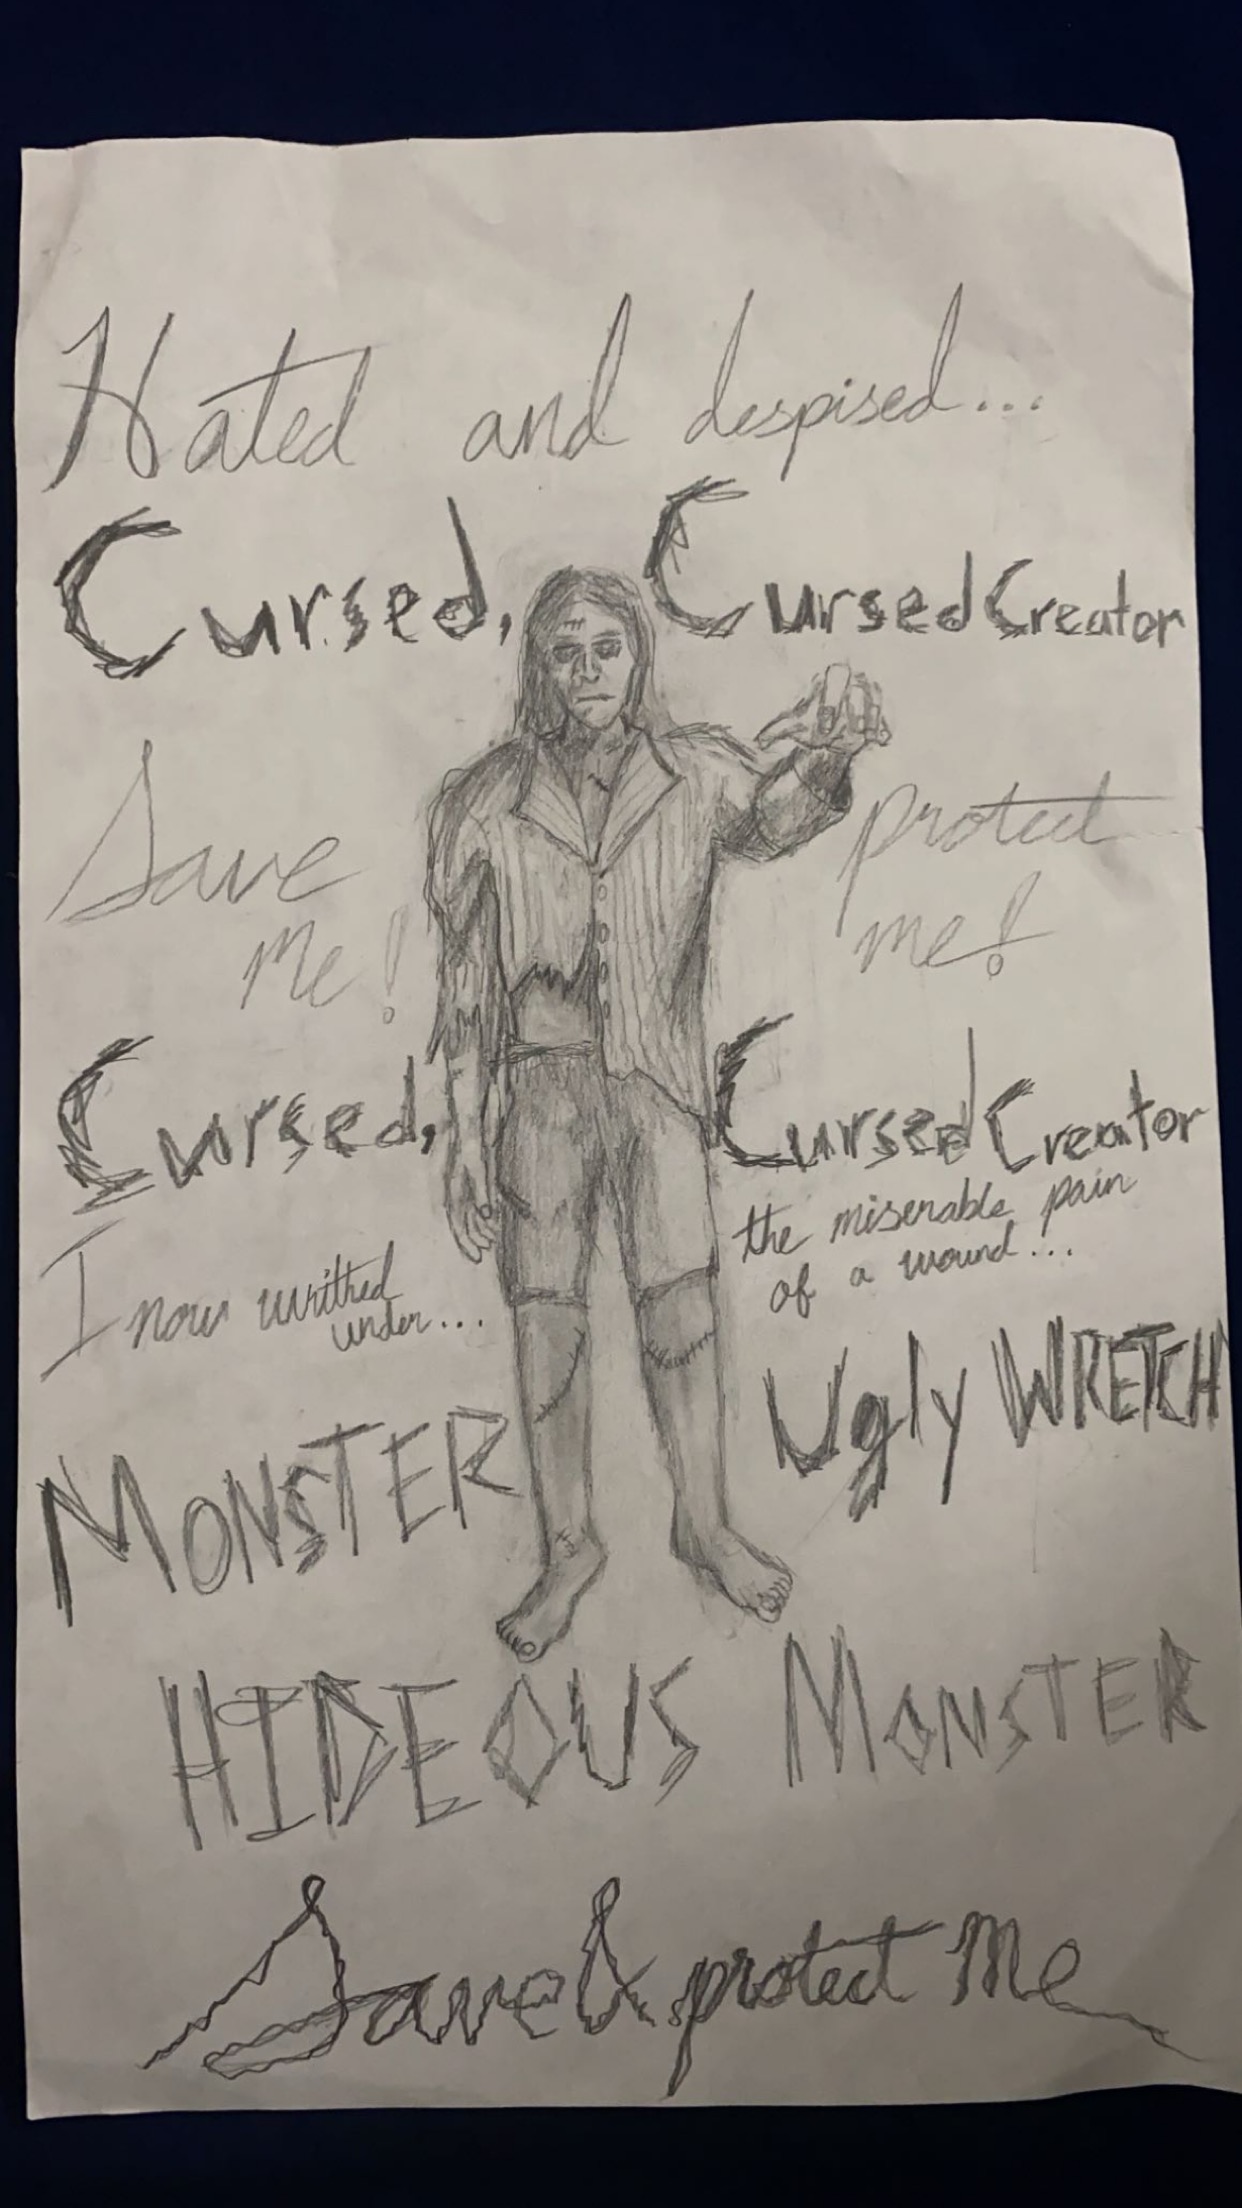 Hated and despised...
Cursed, Cursed Creator
Save protect
me! me!
Cursed, Cursed Creator
I now writhed
under...
the miserable pain
of a wound...
MONSTER Ugly WRETCH
HIDEOUS MONSTER
Save & protect me